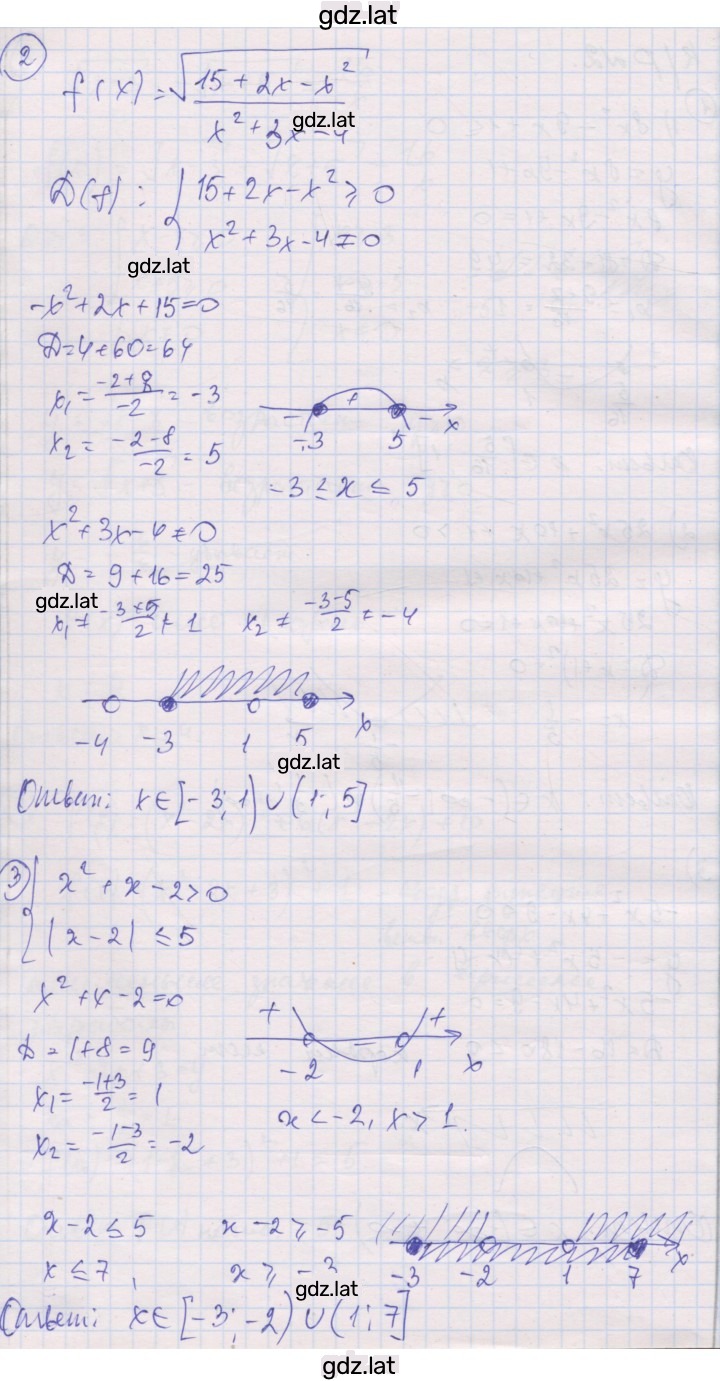 gdz.lat
2
f(x) = √(15 + 2x - x²) / (x² + 3x - 4)
gdz.lat
D(f): { 15 + 2x - x² ≥ 0
x² + 3x - 4 ≠ 0
gdz.lat
-x² + 2x + 15 = 0
D = 4 + 60 = 64
x₁ = (-2+8)/(-2) = -3
x₂ = (-2-8)/(-2) = 5
- + - x
-3 5
-3 ≤ x ≤ 5
x² + 3x - 4 ≠ 0
D = 9 + 16 = 25
gdz.lat
x₁ ≠ (-3+5)/2 ≠ 1 x₂ ≠ (-3-5)/2 ≠ -4
-4 -3 1 5 x
gdz.lat
Ответ: x ∈ [-3; 1) ∪ (1; 5]
3 { x² + x - 2 > 0
|x - 2| ≤ 5
x² + x - 2 = 0
D = 1 + 8 = 9
x₁ = (-1+3)/2 = 1
x₂ = (-1-3)/2 = -2
+ - +
-2 1 x
x < -2, x > 1.
x - 2 ≤ 5 x - 2 ≥ -5
x ≤ 7, x ≥ -3
-3 -2 1 7 x
Ответ: x ∈ [-3; -2) ∪ (1; 7]
gdz.lat